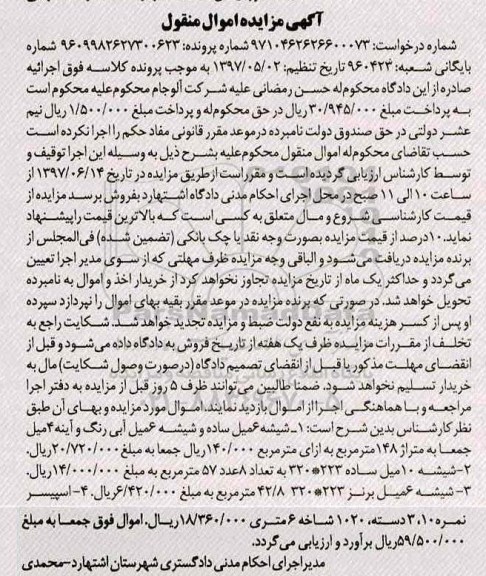 آگهی مزایده اموال منقول
شماره درخواست: ۹۷۱۰۴۶۲۶۲۶۶۰۰۰۷۳ شماره پرونده: ۹۶۰۹۹۸۲۶۲۷۳۰۰۶۲۳ شماره
بایگانی شعبه: ۹۶۰۴۲۳ تاریخ تنظیم: ۱۳۹۷/۰۵/۰۲ به موجب پرونده کلاسه فوق اجرائیه
صادره از این دادگاه محکوم‌له حسن رمضانی علیه شرکت آلوجام محکوم‌علیه محکوم است
به پرداخت مبلغ ۳۰/۹۴۵/۰۰۰ریال در حق محکوم‌له و پرداخت مبلغ ۱/۵۰۰/۰۰۰ ریال نیم
عشر دولتی در حق صندوق دولت نامبرده درموعد مقرر قانونی مفاد حکم را اجرا نکرده است
حسب تقاضای محکوم‌له اموال منقول محکوم‌علیه بشرح ذیل به وسیله این اجرا توقیف و
توسط کارشناس ارزیابی گردیده است و مقرراست ازطریق مزایده در تاریخ ۱۳۹۷/۰۶/۱۴ از
ساعت ۱۰ الی ۱۱ صبح در محل اجرای احکام مدنی دادگاه اشتهارد بفروش برسد مزایده از
قیمت کارشناسی شروع و مال متعلق به کسی است که بالاترین قیمت راپیشنهاد
نماید. ۱۰درصد از قیمت مزایده بصورت وجه نقد یا چک بانکی (تضمین شده) فی‌المجلس از
برنده مزایده دریافت می‌شود و الباقی وجه مزایده ظرف مهلتی که از سوی مدیر اجرا تعیین
می‌گردد و حداکثر یک ماه از تاریخ مزایده تجاوز نخواهد کرد از خریدار اخذ و اموال به نامبرده
تحویل خواهد شد. در صورتی که برنده مزایده در موعد مقرر بقیه بهای اموال را نپردازد سپرده
او پس از کسر هزینه مزایده به نفع دولت ضبط و مزایده تجدید خواهد شد. شکایت راجع به
تخلف از مقررات مزایده ظرف یک هفته از تاریخ فروش به دادگاه داده می‌شود و قبل از
انقضای مهلت مذکور یا قبل از انقضای تصمیم دادگاه (درصورت وصول شکایت) مال به
خریدار تسلیم نخواهد شود. ضمنا طالبین می‌توانند ظرف ۵ روز قبل از مزایده به دفتر اجرا
مراجعه و با هماهنگی اجرا از اموال بازدید نمایند. اموال مورد مزایده و بهای آن طبق
نظر کارشناس بدین شرح است: ۱-شیشه ۶میل ساده و شیشه ۶میل آبی رنگ و آینه ۴میل
جمعا به متراژ ۱۴۸مترمربع به ازای مترمربع ۱۴۰/۰۰۰ریال جمعا به مبلغ ۲۰/۷۲۰/۰۰۰ریال.
۲-شیشه ۱۰میل ساده ۲۲۳*۳۲۰ به تعداد ۸عدد ۵۷ مترمربع به مبلغ ۱۴/۰۰۰/۰۰۰ریال.
۳- شیشه ۶میل برنز ۲۲۳*۳۲۰ ۴۲/۸ مترمربع به مبلغ ۶/۴۲۰/۰۰۰ریال. ۴-اسپیسر
نمره ۱۰، ۳دسته، ۱۰۲۰ شاخه ۶متری ۱۸/۳۶۰/۰۰۰ریال. اموال فوق جمعا به مبلغ
۵۹/۵۰۰/۰۰۰ریال برآورد و ارزیابی می‌گردد.
مدیر اجرای احکام مدنی دادگستری شهرستان اشتهارد-محمدی